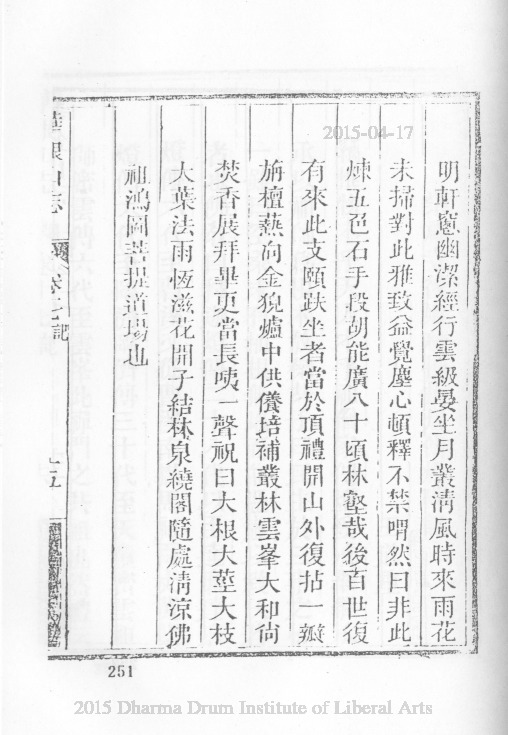 2015-04-17
明軒窻幽潔經行雲級晏坐月叢清風時來雨花
未掃對此雅致益覺塵心頓釋不禁喟然曰非此
煉五色石手段胡能廣八十頃林壑哉後百世復
有來此支頤趺坐者當於頂禮開山外復拈一瓣
旃檀爇向金猊爐中供養培補叢林雲峯大和尚
焚香展拜畢更當長咦一聲祝曰大根大莖大枝
大葉法雨恆滋花開子結林泉繞閣隨處清涼佛
祖鴻圖菩提道場也
山志
卷之 記
十五
251
2015 Dharma Drum Institute of Liberal Arts